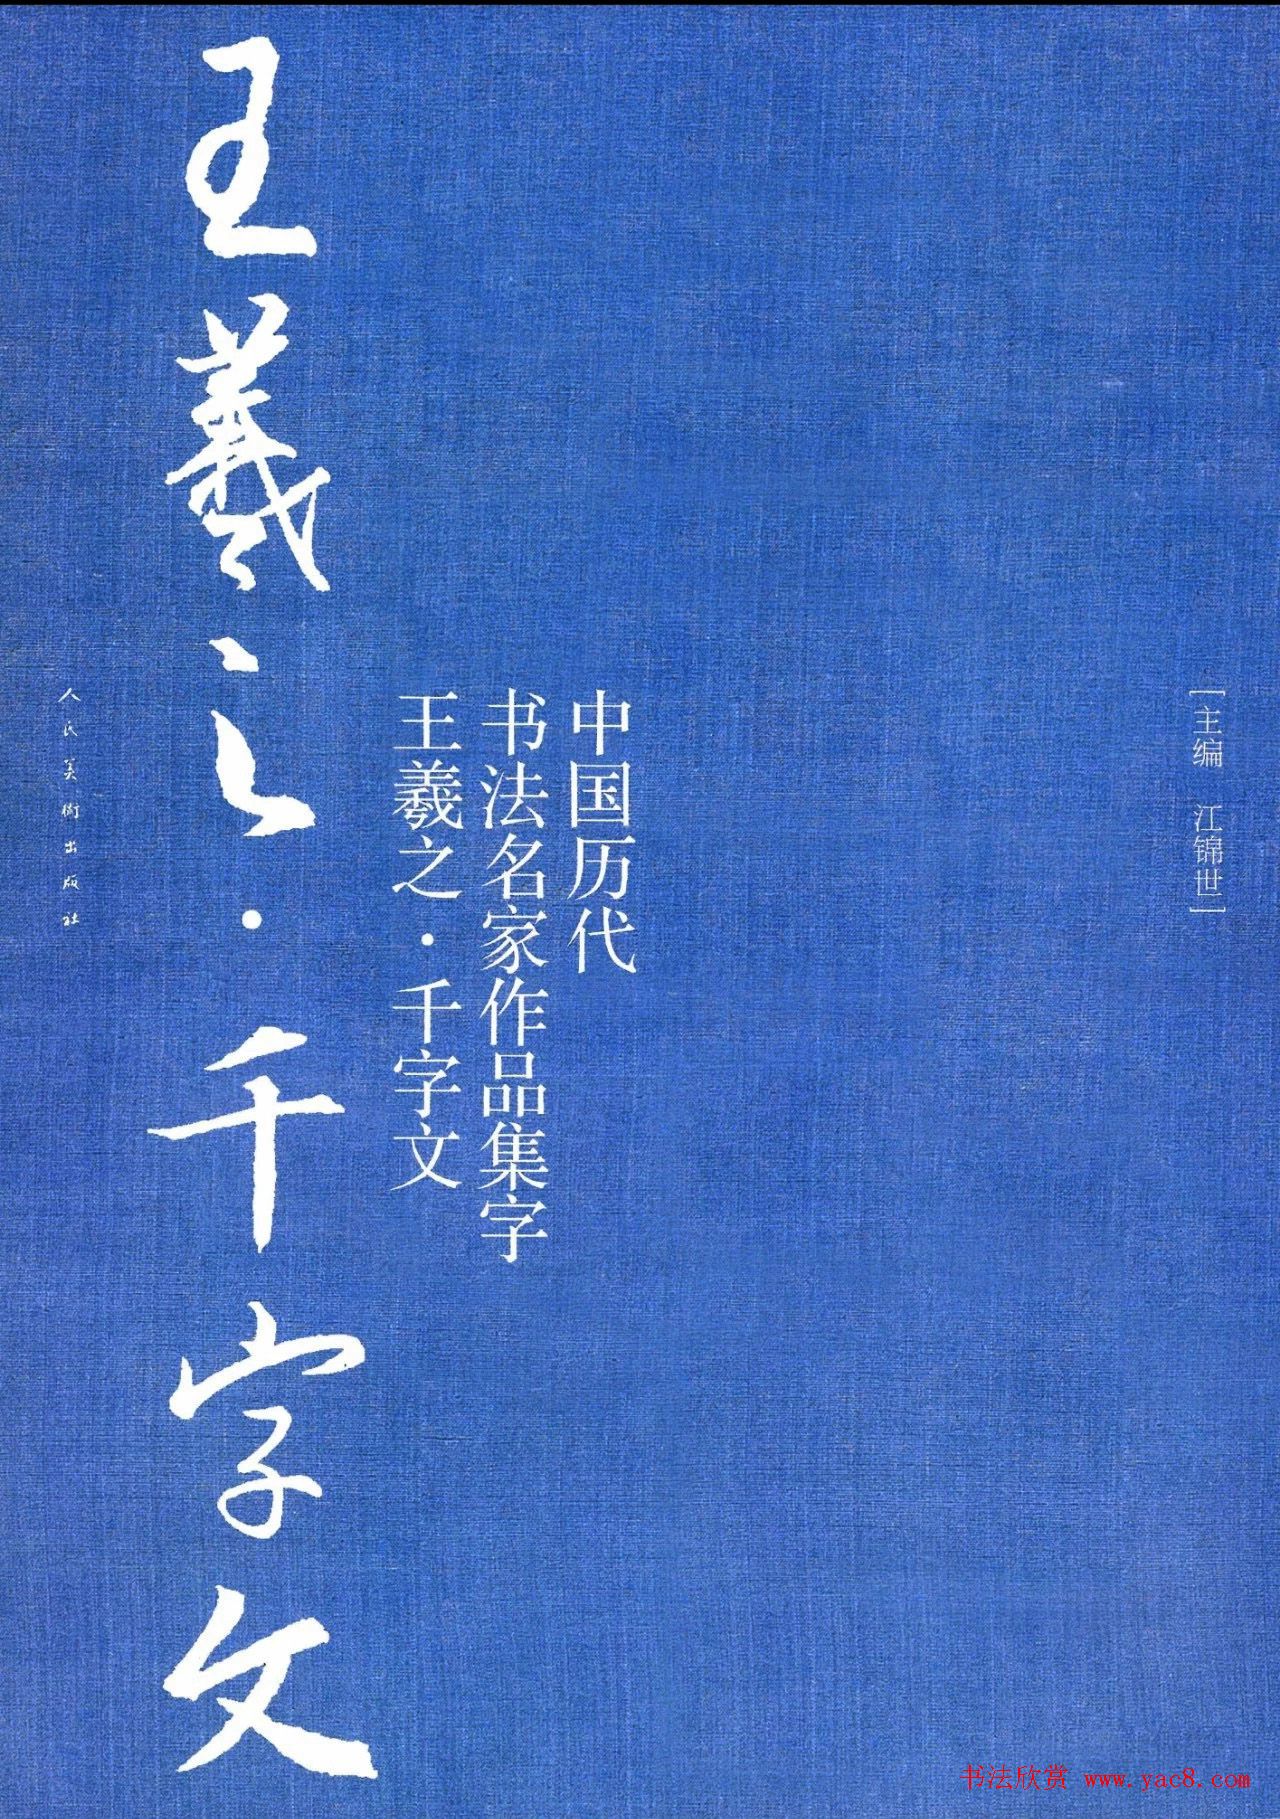 [主编 江锦世]
中国历代
书法名家作品集字
王羲之·千字文
王羲之·千字文
人民美術出版社
书法欣赏 www.yac8.com